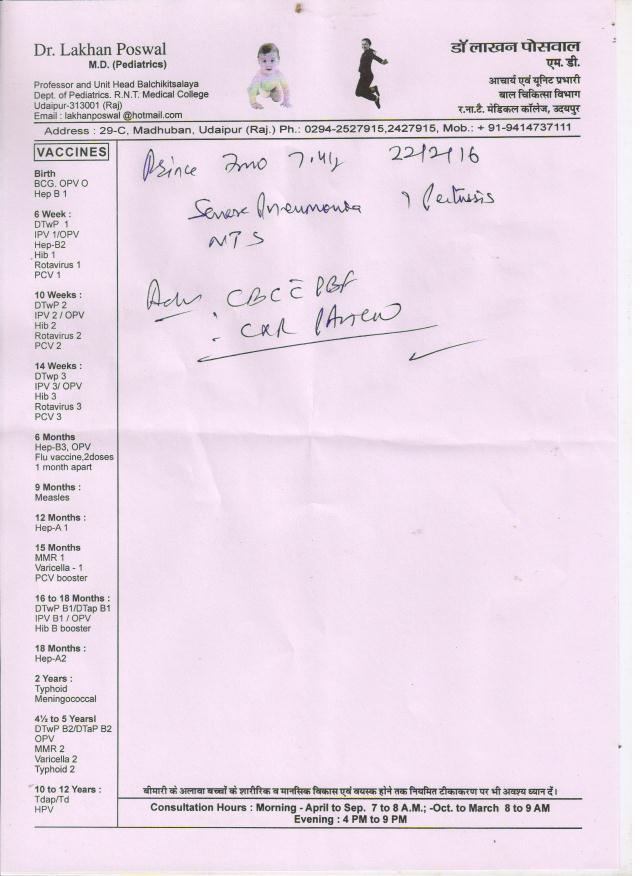 Dr. Lakhan Poswal
M.D. (Pediatrics)
Professor and Unit Head Balchikitsalaya
Dept. of Pediatrics. R.N.T. Medical College
Udaipur-313001 (Raj)
Email : lakhanposwal @hotmail.com
डॉ लाखन पोसवाल
एम. डी.
आचार्य एवं यूनिट प्रभारी
बाल चिकित्सा विभाग
र.ना.टै. मेडिकल कॉलेज, उदयपुर
Address : 29-C, Madhuban, Udaipur (Raj.) Ph.: 0294-2527915,2427915, Mob.: + 91-9414737111
VACCINES
Birth
BCG. OPV O
Hep B 1
6 Week :
DTwP 1
IPV 1/OPV
Hep-B2
Hib 1
Rotavirus 1
PCV 1
10 Weeks :
DTwP 2
IPV 2 / OPV
Hib 2
Rotavirus 2
PCV 2
14 Weeks :
DTwp 3
IPV 3/ OPV
Hib 3
Rotavirus 3
PCV 3
6 Months
Hep-B3, OPV
Flu vaccine,2doses
1 month apart
9 Months :
Measles
12 Months :
Hep-A 1
15 Months
MMR 1
Varicella - 1
PCV booster
16 to 18 Months :
DTwP B1/DTap B1
IPV B1 / OPV
Hib B booster
18 Months :
Hep-A2
2 Years :
Typhoid
Meningococcal
4½ to 5 Yearsl
DTwP B2/DTaP B2
OPV
MMR 2
Varicella 2
Typhoid 2
10 to 12 Years :
Tdap/Td
HPV
Prince 22/2/16
Severe Pneumonia ? Pertussis
Adv CBC
CXR
बीमारी के अलावा बच्चों के शारीरिक व मानसिक विकास एवं वयस्क होने तक नियमित टीकाकरण पर भी अवश्य ध्यान दें।
Consultation Hours : Morning - April to Sep. 7 to 8 A.M.; -Oct. to March 8 to 9 AM
Evening : 4 PM to 9 PM